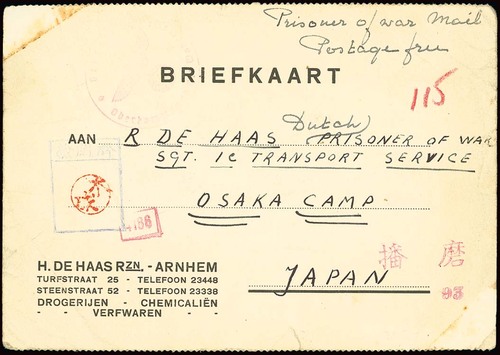 Prisoner of war Mail
Postage free
BRIEFKAART
115
Dutch
AAN R DE HAAS (PRISONER OF WAR
SGT. 1C TRANSPORT SERVICE
OSAKA CAMP
4186
H. DE HAAS RZN. - ARNHEM
TURFSTRAAT 25 - TELEFOON 23448
STEENSTRAAT 52 - TELEFOON 23338
DROGERIJEN - CHEMICALIËN
- - VERFWAREN - -
JAPAN
播磨
93